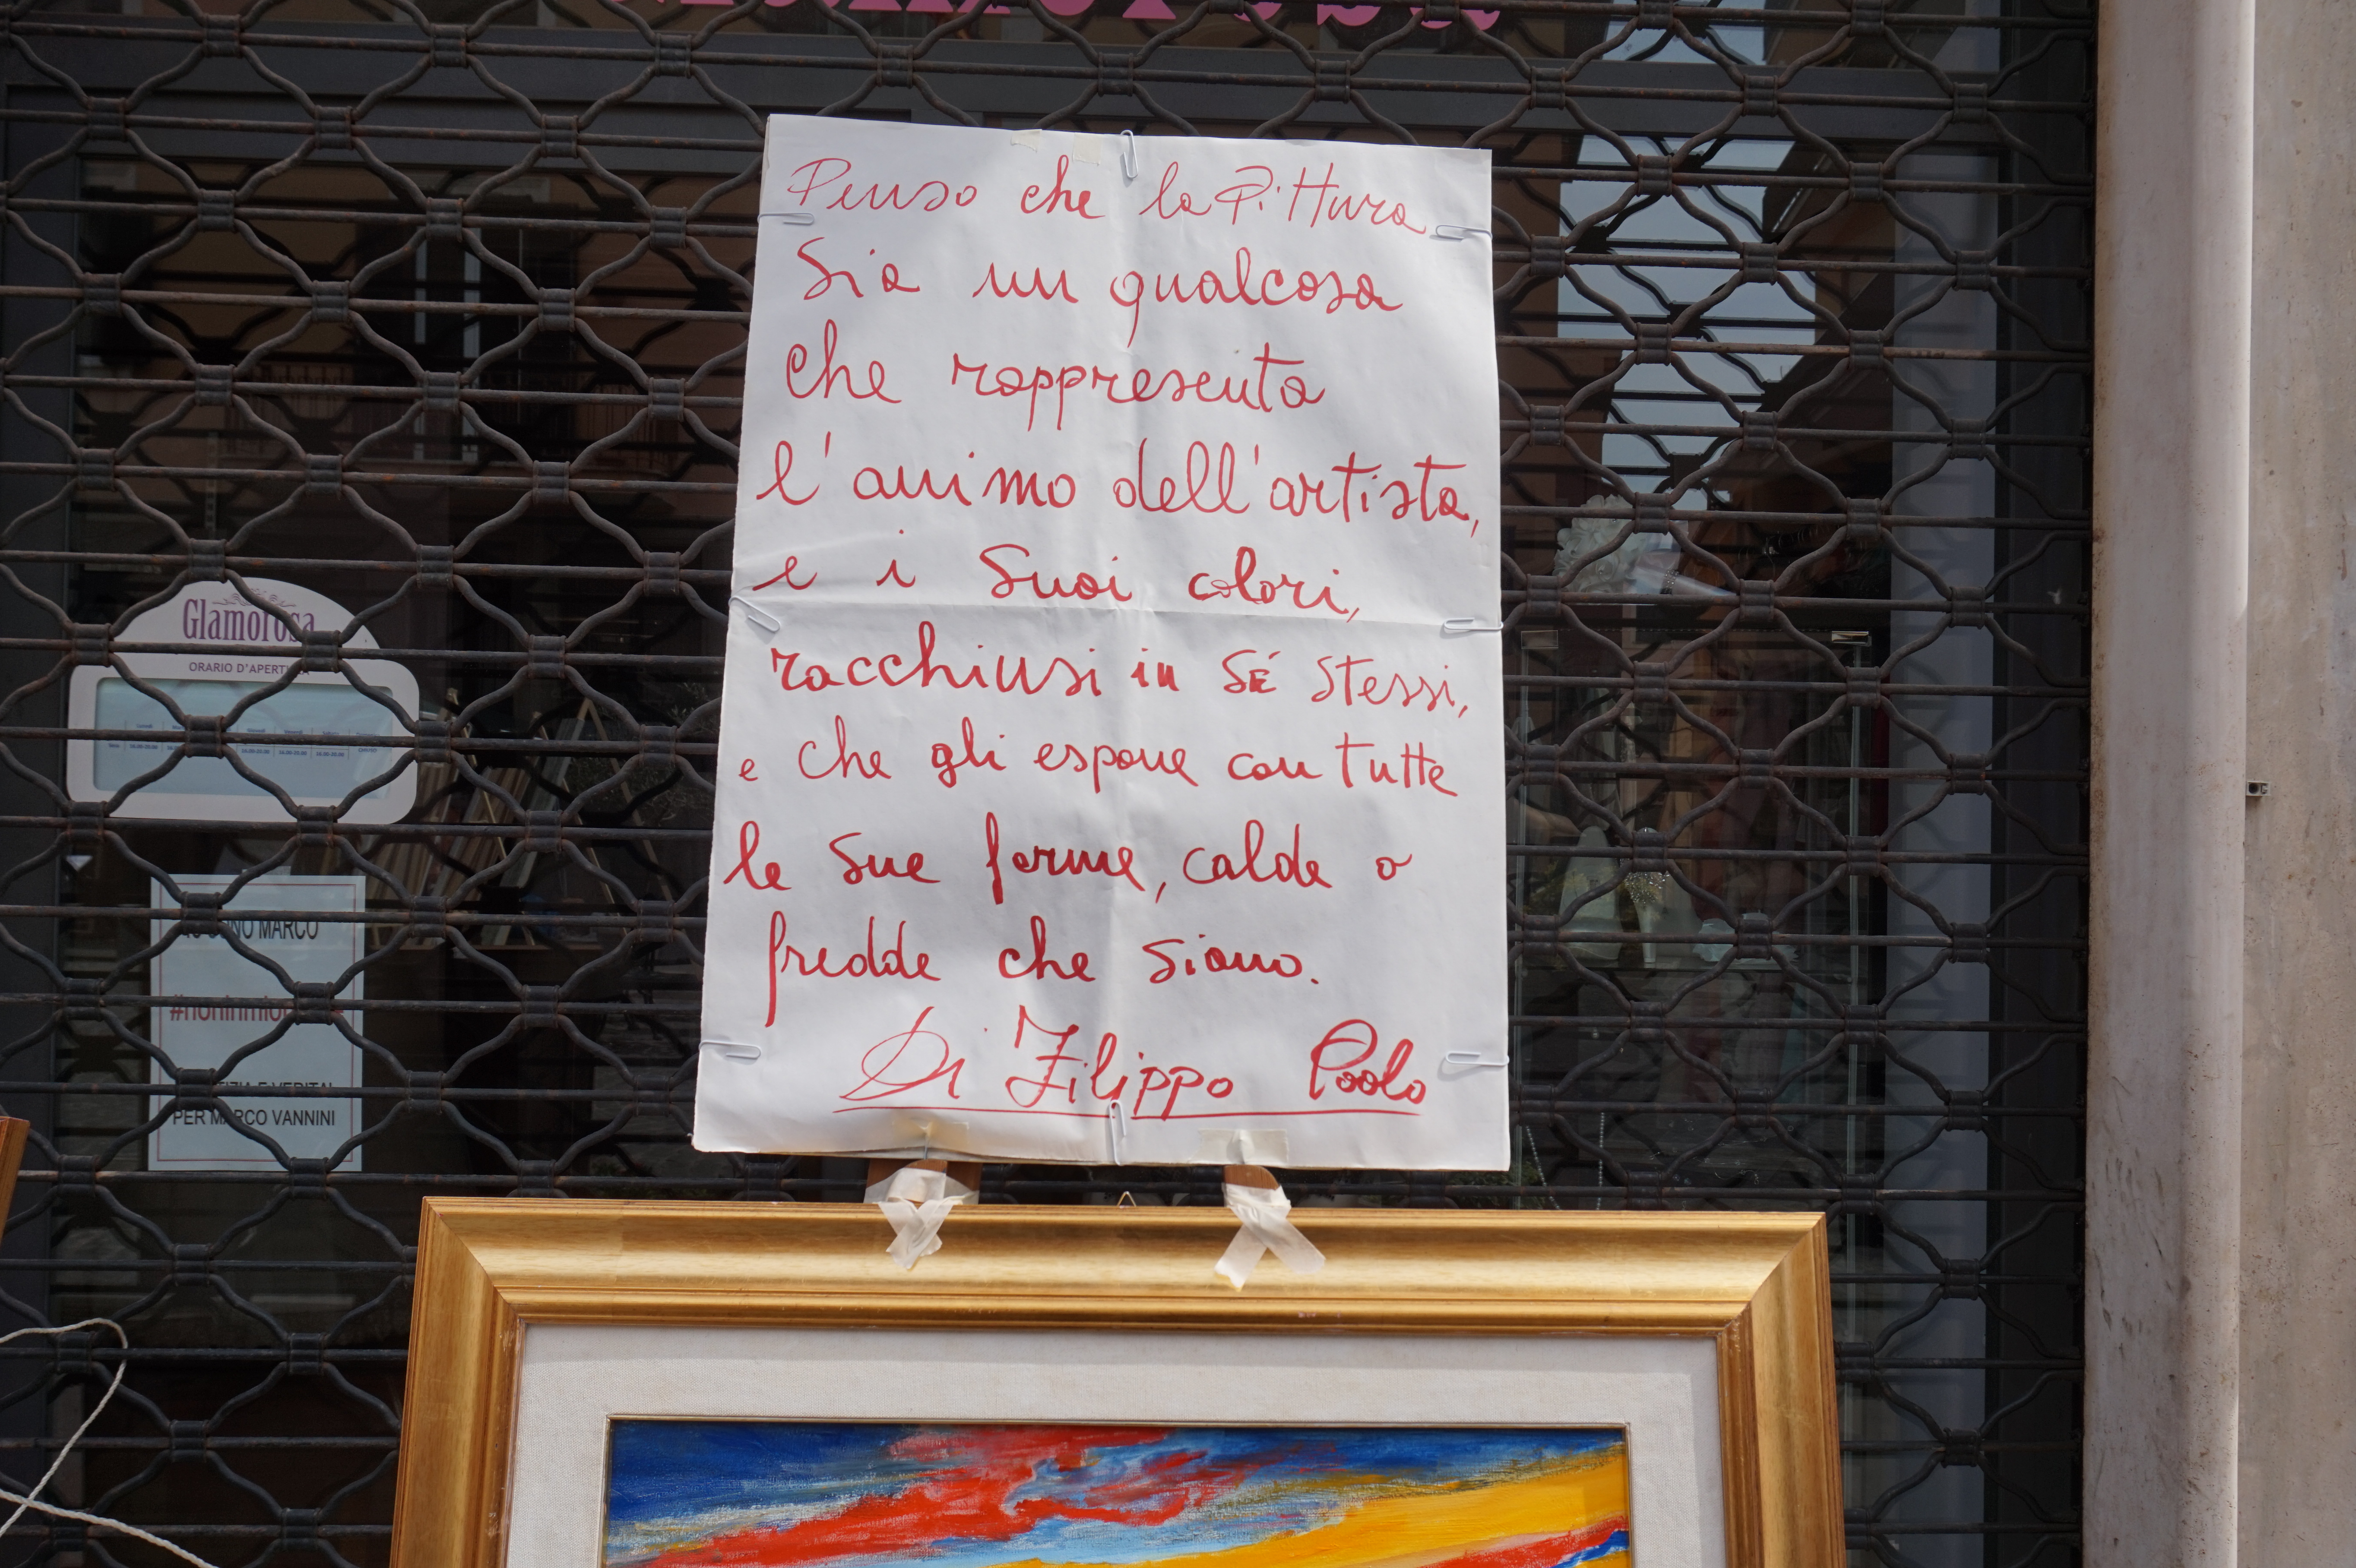 Penso che la Pittura
Sia un qualcosa
che rappresenta
l'animo dell'artista,
e i Suoi colori,
racchiusi in SÉ stessi,
e che gli espone con tutte
le sue forme, calde o
fredde che siano.
Di Filippo Paolo
Glamorosa
ORARIO D'APERTURA
MARCO
PER MARCO VANNINI